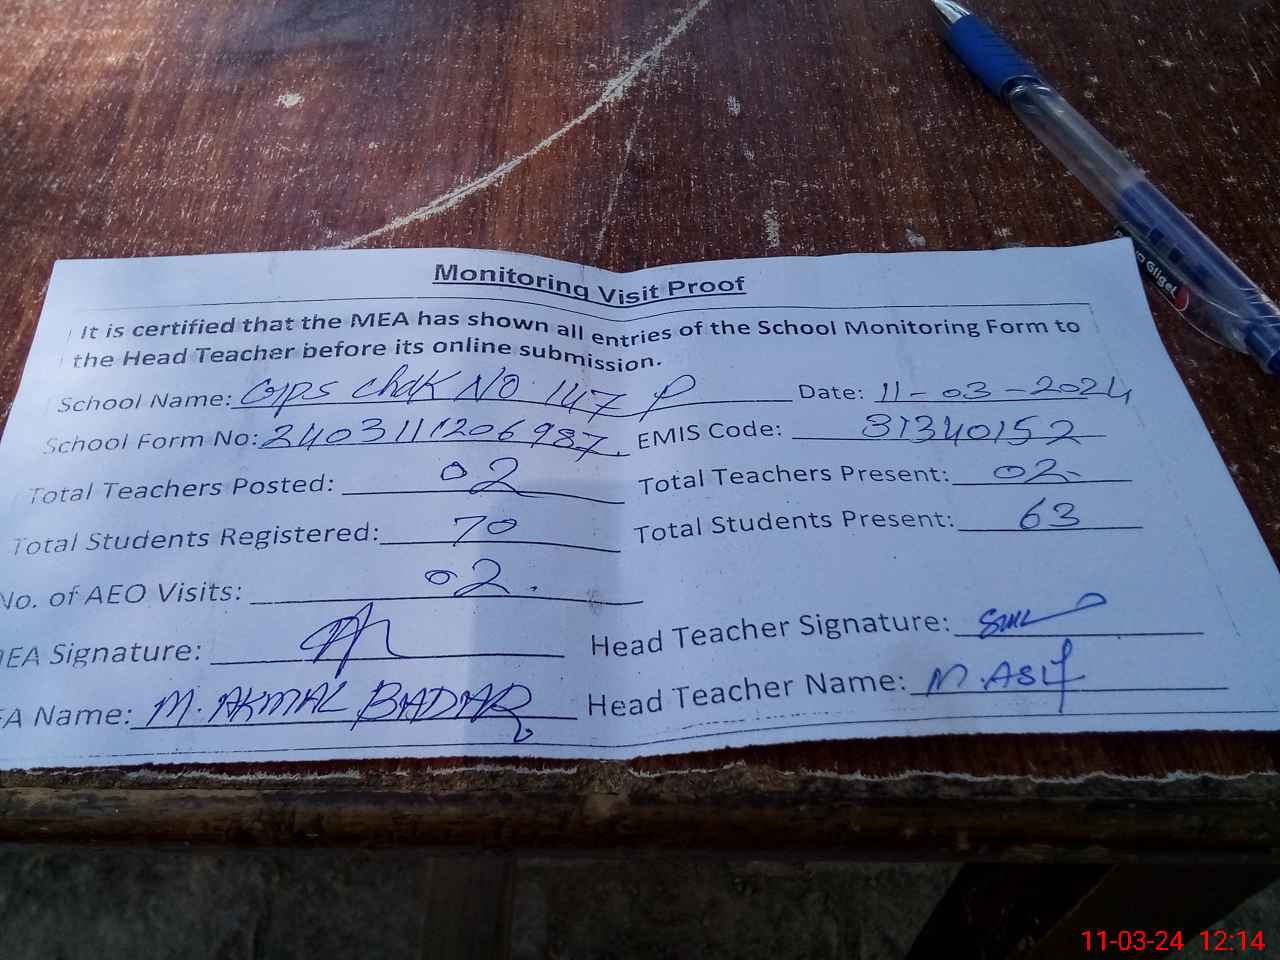 Monitoring Visit Proof
It is certified that the MEA has shown all entries of the School Monitoring Form to
the Head Teacher before its online submission.
School Name: GPS Chak NO. 147 P Date: 11-03-2024
School Form No: 2403111206987. EMIS Code: 31340152
Total Teachers Posted: 02 Total Teachers Present: 02
Total Students Registered: 70 Total Students Present: 63
No. of AEO Visits: 02.
EA Signature: Head Teacher Signature:
A Name: M. AKMAL BADAR Head Teacher Name: M. ASIF
Gliget
11-03-24 12:14